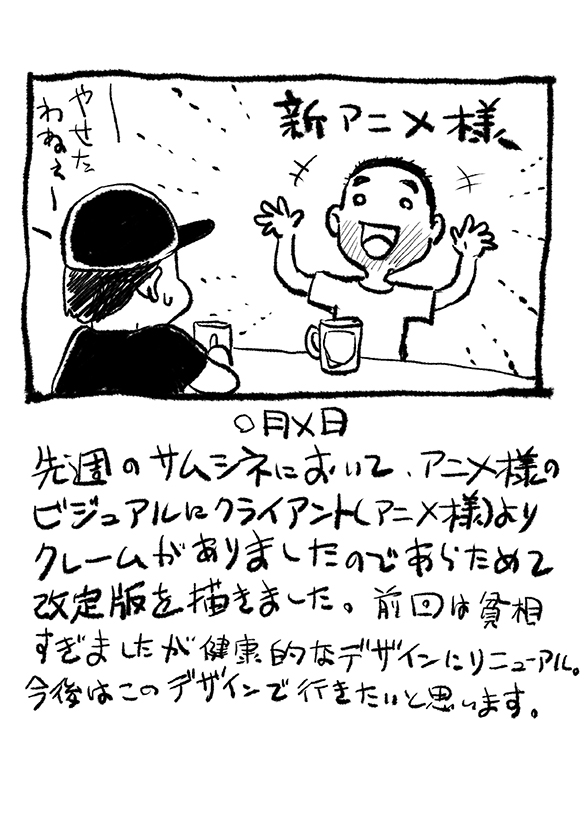 新アニメ様
やせた
わねぇー
〇月×日
先週のサムシネにおいて、アニメ様の
ビジュアルにクライアント(アニメ様)より
クレームがありましたのであらためて
改定版を描きました。前回は貧相
すぎましたが健康的なデザインにリニューアル。
今後はこのデザインで行きたいと思います。